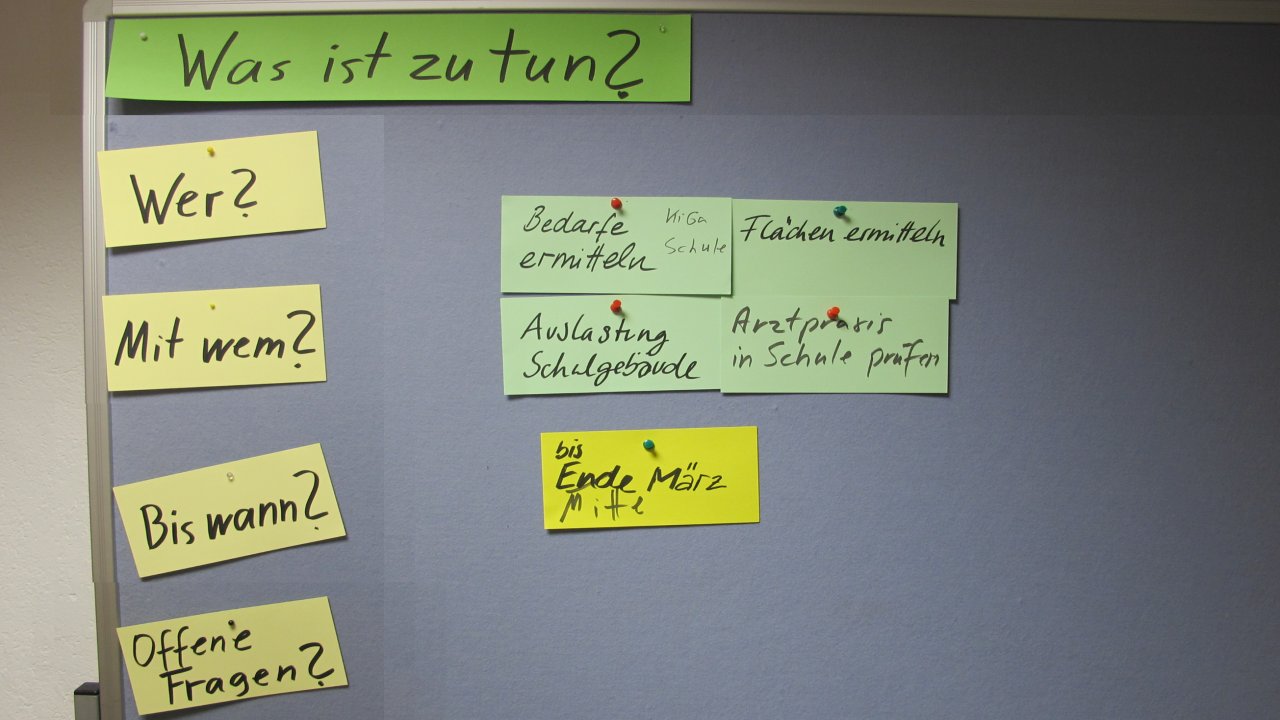 Was ist zu tun?
Wer?
Bedarfe
ermitteln
KiGa
Schule
Flächen ermitteln
Mit wem?
Auslastung
Schulgebäude
Arztpraxis
in Schule prüfen
Bis wann?
bis
Ende März
Mitte
Offene
Fragen?